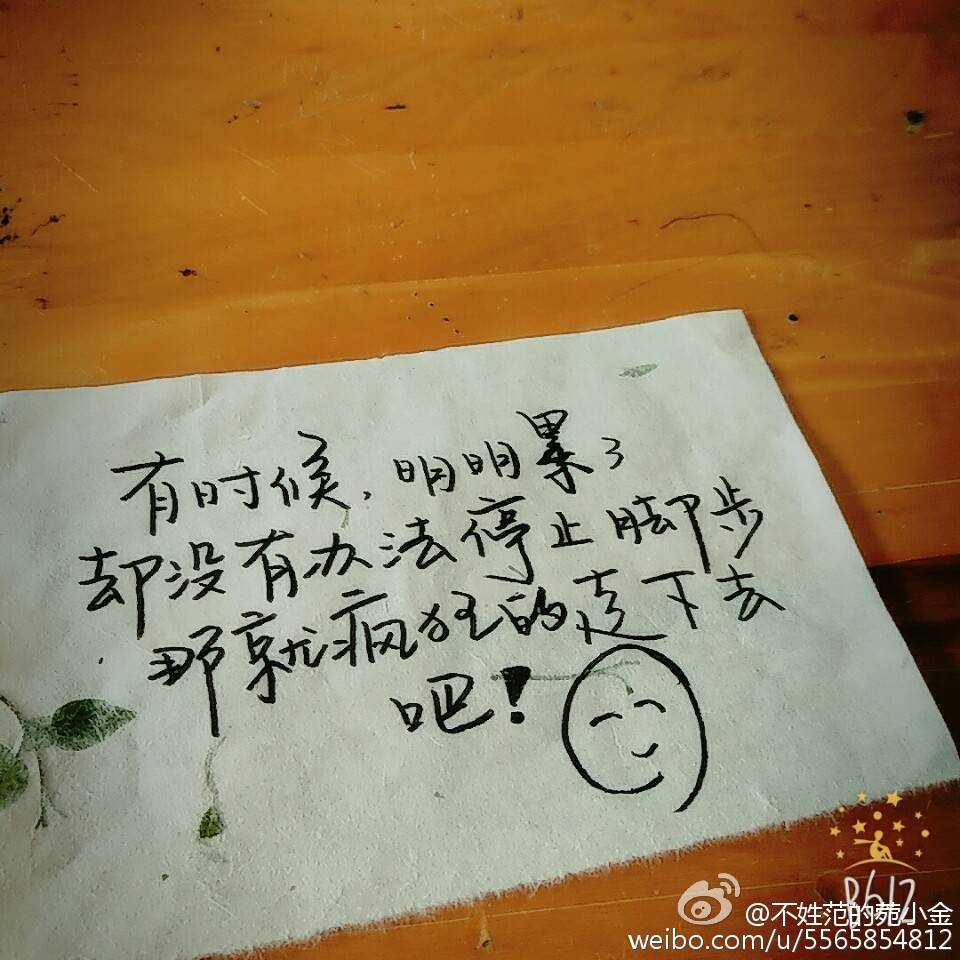 有时候,明明累了
却没有办法停止脚步
那就疯狂的走下去
吧!
B612
@不姓范的苑小金
weibo.com/u/5565854812